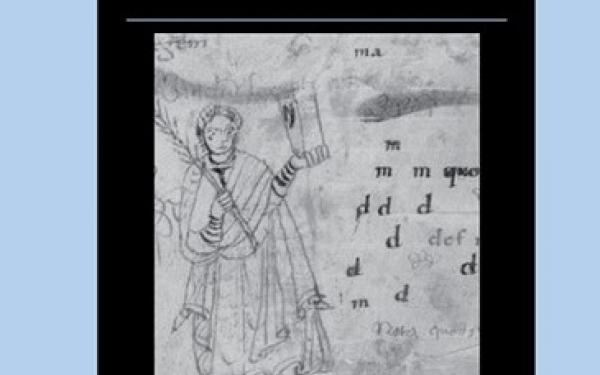 ma
m
m m quo
d d d
d def
d d
m d